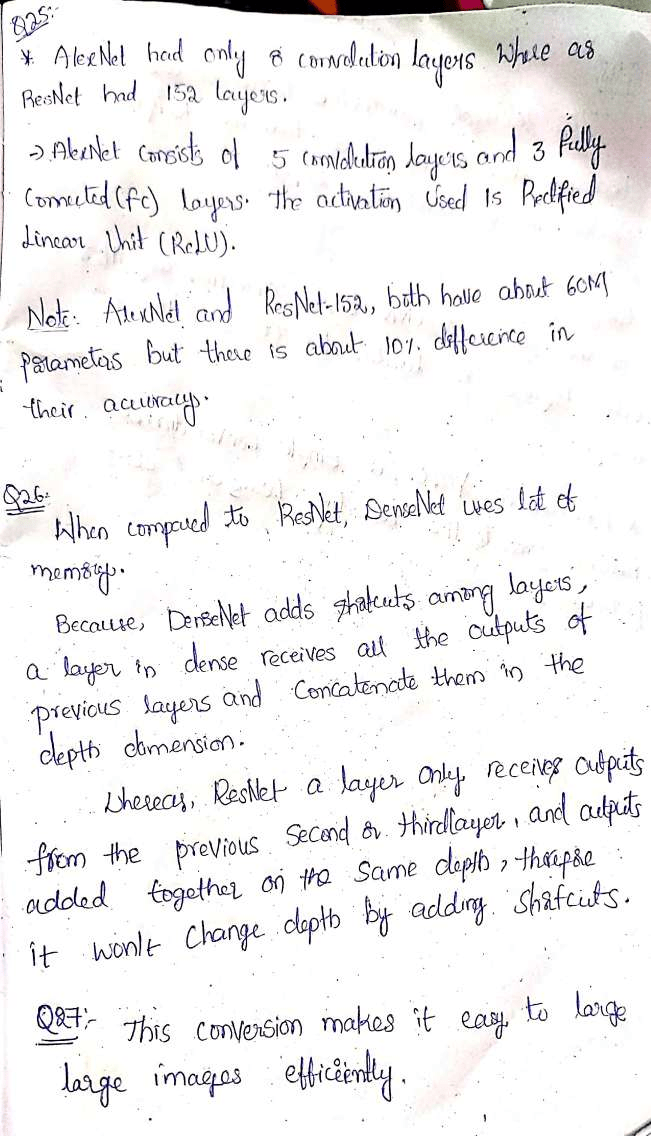 Q25:-
* AlexNet had only 8 convolution layers where as
ResNet had 152 layers.
→ AlexNet consists of 5 convolution layers and 3 Fully
Connected (fc) layers. The activation used is Rectified
Linear Unit (ReLU).
Note: AlexNet and ResNet-152, both have about 60M
parameters but there is about 10% difference in
their accuracy.
Q26:
When compared to ResNet, DenseNet uses lot of
memory.
Because, DenseNet adds shortcuts among layers,
a layer in dense receives all the outputs of
previous layers and Concatenate them in the
depth dimension.
Whereas, ResNet a layer only receives outputs
from the previous second or third layer, and outputs
added together on the same depth, therefore
it won't change depth by adding shortcuts.
Q27:- This conversion makes it easy to large
large images efficiently.